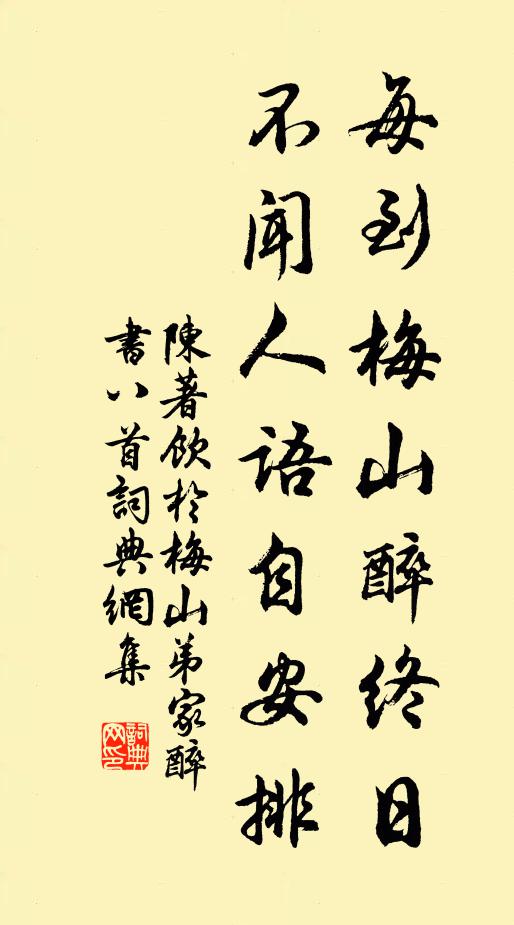 每到梅山醉終日
不聞人語自安排
陳著飲於梅山弟家醉
書八首詞典網集
詞典
网印